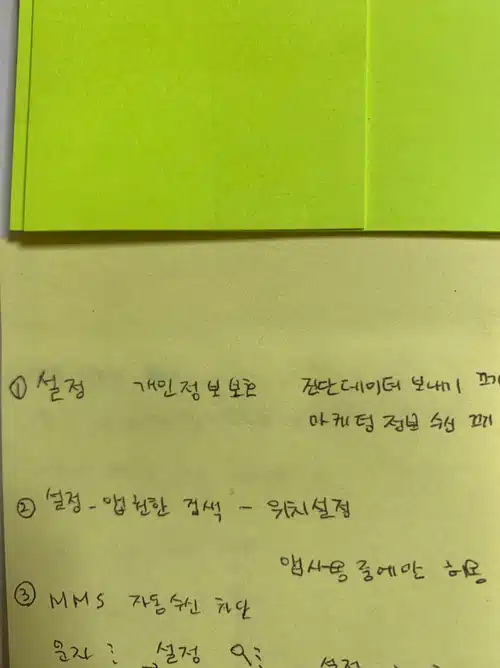 ① 설정 개인정보보호 진단데이터 보내기 끄기
마케팅 정보 수신 끄기
② 설정 - 앱권한 검색 - 위치설정
앱사용 중에만 허용
③ MMS 자동수신 차단
문자 ⋮ 설정